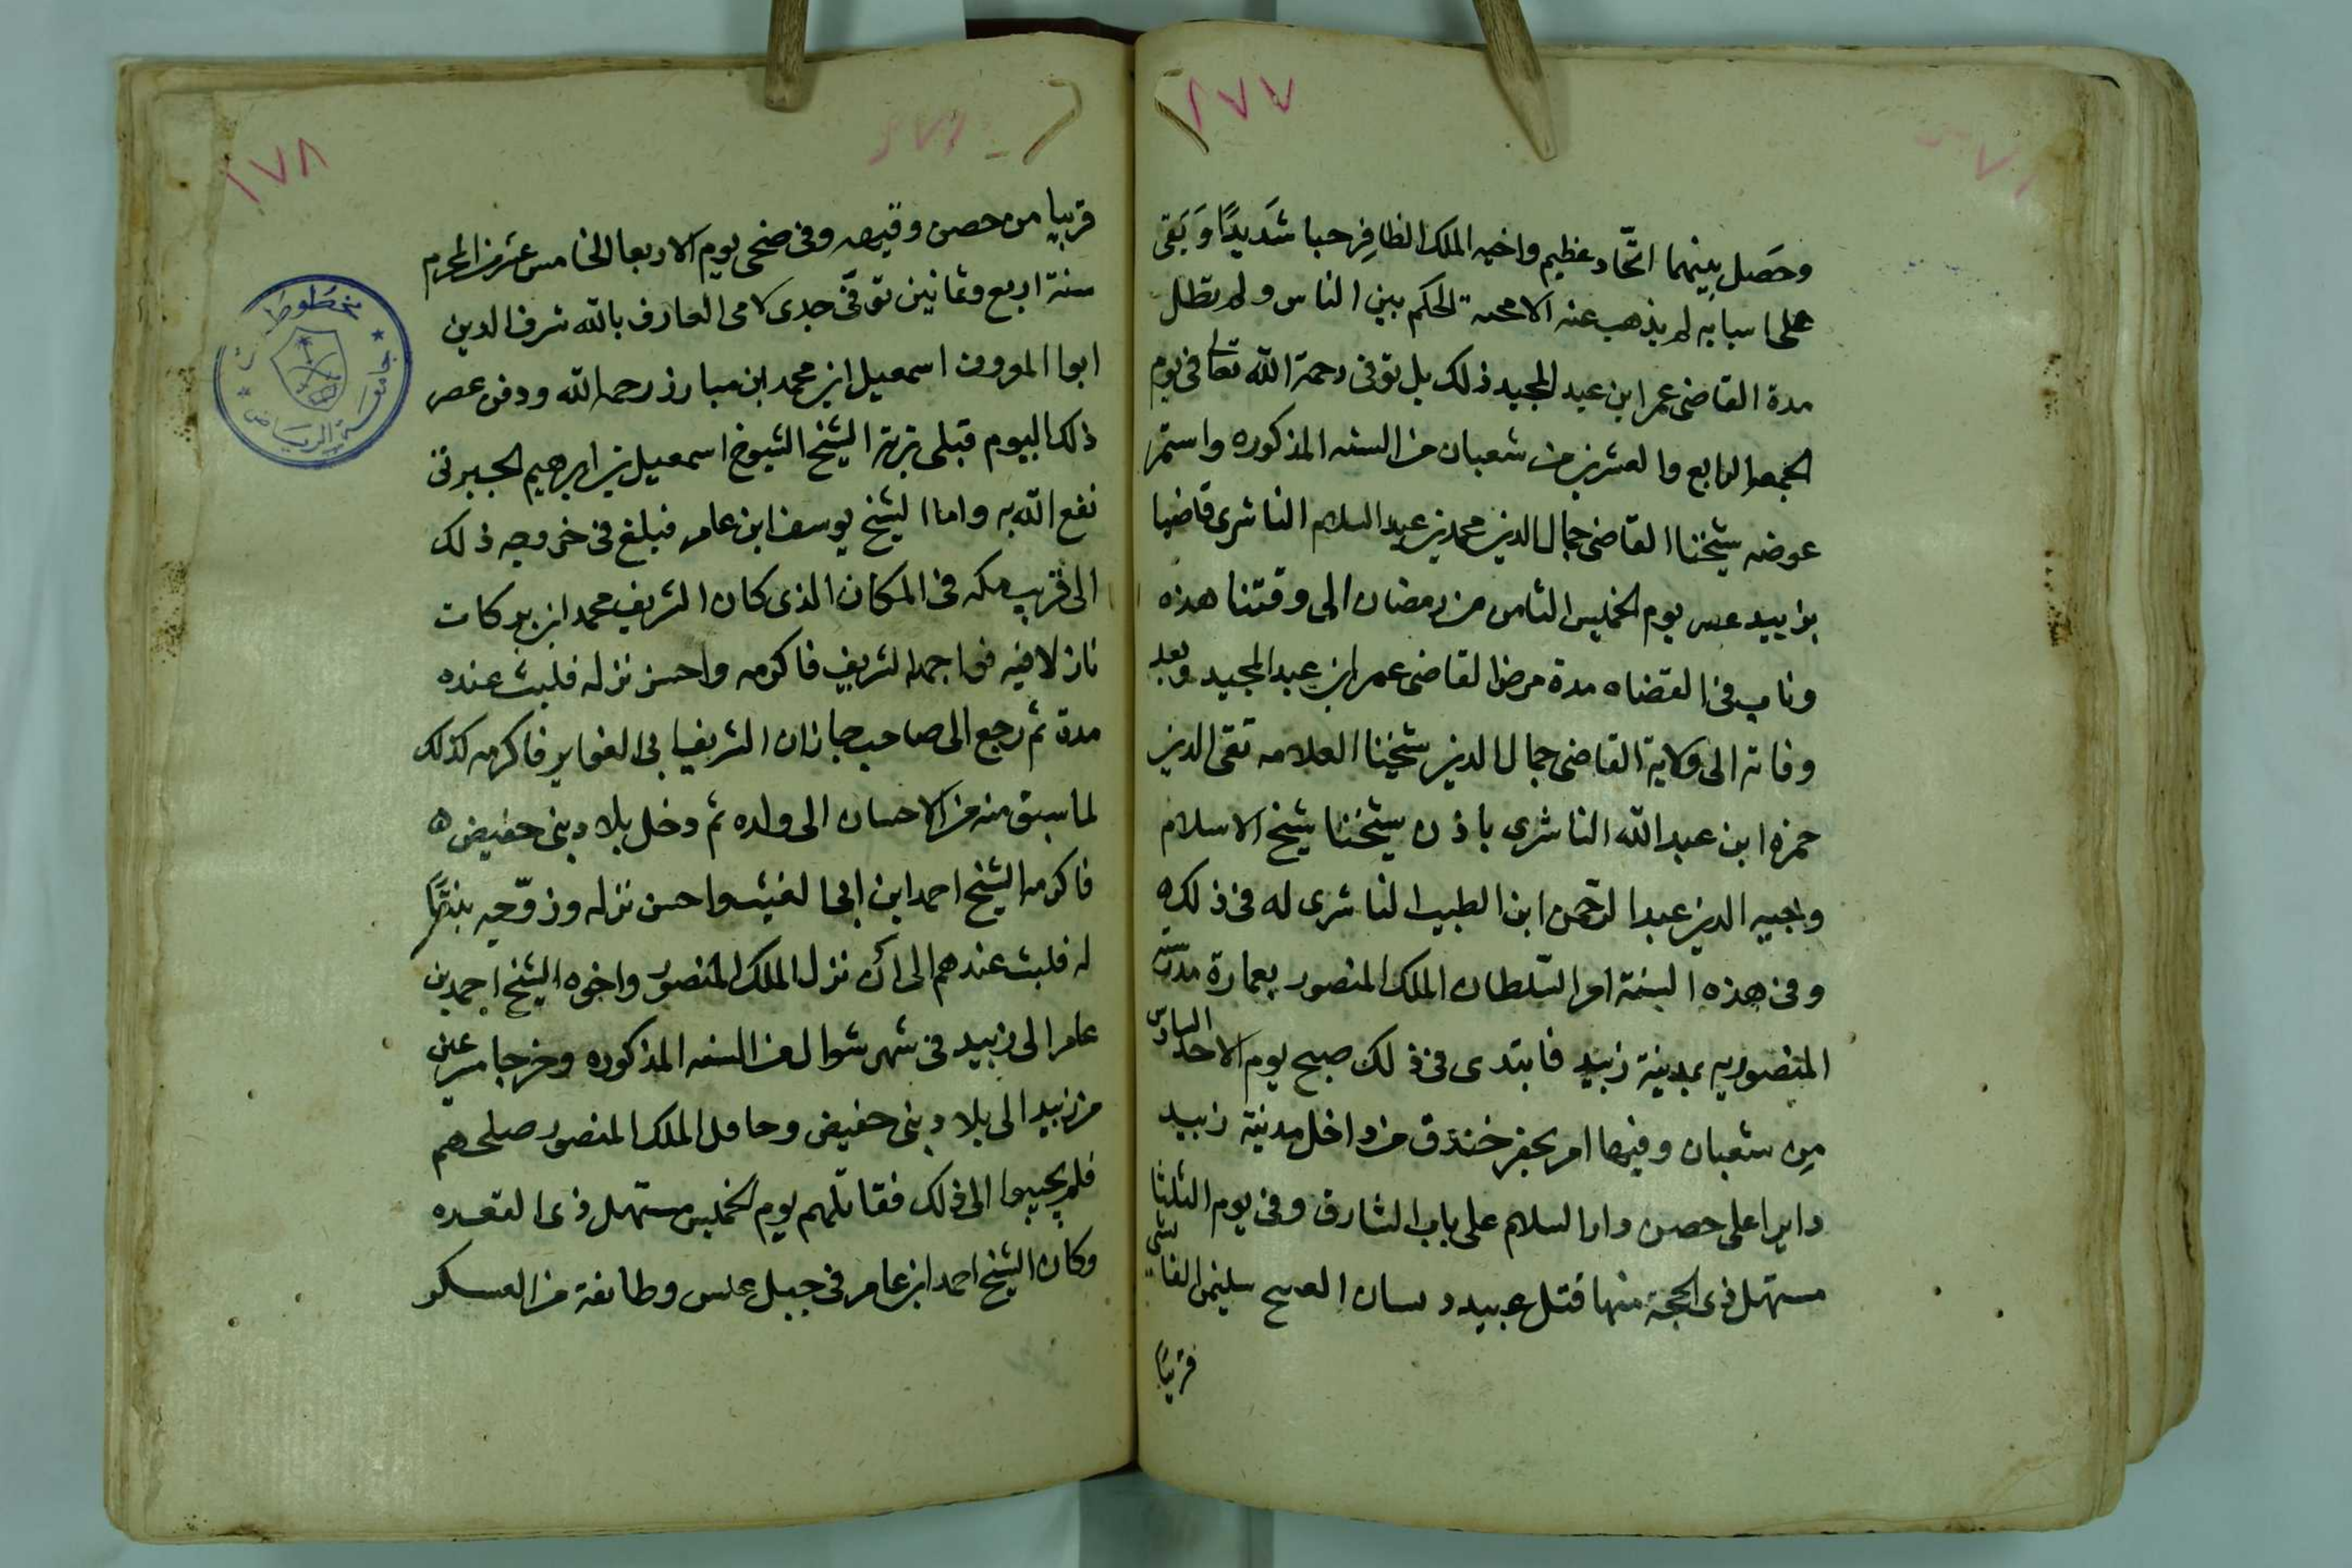 ١٧٧
وحَصل بينهما اتّحاد عظيم واخيه الملك الظافِر حبا شَديدًا وَبَقى
على اسبابه لم يذهب عنه الا محنة الحكم بين الناس ولم تطل
مدة القاضى عمر ابن عبد المجيد ذلك بل توفى رحمة الله تعالى فى يوم
الجمعه الرابع والعشرين من شعبان من السنه المذكوره واستمر
عوضه شيخنا القاضى جمال الدين محمد بن عبد السلام الناشرى قاضيا
بزبيد عصر يوم الخميس الثامن من رمضان الى وقتنا هذه
وناب فى القضاه مدة مرض القاضى عمر ابن عبد المجيد وبعد
وفاته الى ولاية القاضى جمال الدين شيخنا العلامه تقى الدين
حمزه ابن عبد الله الناشرى باذن شيخنا شيخ الاسلام
وجيه الدين عبد الرحمن ابن الطيب الناشرى له فى ذلك ه
وفى هذه السنة امر السّلطان الملك المنصور بعمارة مدرسة
المنصوريه بمدينة زبيد فابتدى فى ذلك صبح يوم الاحد السادس
مِن شعبان وفيها امر بحفر خندق من داخل مدينة زبيد
دايرا على حصن دار السلام على باب الشارق وفى يوم الثلثا
مستهل ذى الحجة منها قتل عبيد د سليمن القا شى
قريبًا
١٧٨
قريبا من حصن وقيصه وفى ضحى يوم الاربعا الخامس عشر من المحرم
سنة اربع وثمانين توفّى جدى لامى العارف بالله شرف الدين
ابوا المروف اسمعيل ابن محمد ابن مبارز رحمه الله ودفن عصر
ذلك اليوم قبلى تربة الشيخ الشيوخ اسمعيل بن ابرهيم الجبرتى
نفع الله به واما الشيخ يوسف ابن عامر فبلغ فى خروجه ذلك
الى قريب مكه فى المكان الذى كان الشريف محمد ابن بركات
نازلا فيه فواجه الشريف فاكرمه واحسن نزله فلبث عنده
مدة ثم رجع الى صاحب جازان الشريف ابى الغواير فاكرمه كذلك
لما سبق منه من الاحسان الى والده ثم دخل بلاد بنى حفيض ه
فاكرمه الشيخ احمد ابن ابى الغيث واحسن نزله وزوّجه بنتًا
له فلبث عندهم الى أن نزل الملك المنصور واخوه الشيخ احمد بن
عامر الى زبيد فى شهر شوال من السنه المذكوره وخرجا مسرعين
من زبيد الى بلاد بنى حفيض وحاول الملك المنصور صلحهم
فلم يجيبوا الى ذلك فقاتلهم يوم الخميس مستهل ذى القعده
وكان الشيخ احمد ابن عامر فى جبل عنس وطائفة من العسكر
مخطوطات
جامعة الرياض